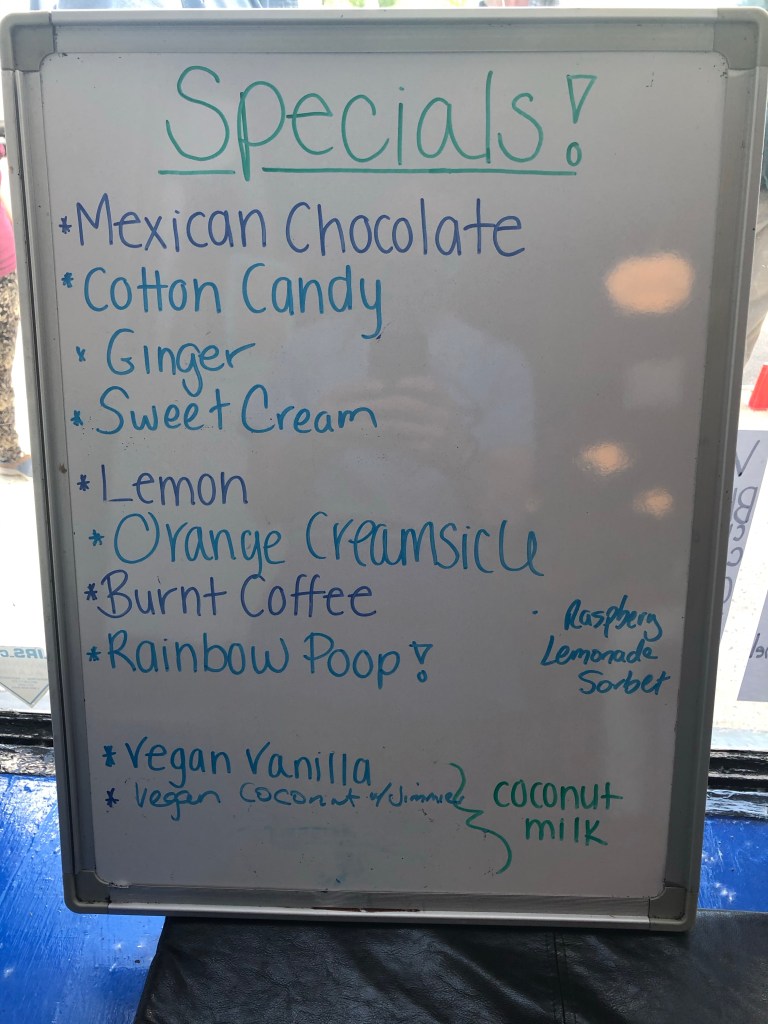 Specials!
*Mexican Chocolate
*Cotton Candy
*Ginger
*Sweet Cream
*Lemon
*Orange Creamsicle
*Burnt Coffee
*Rainbow Poop!
· Raspberry
Lemonade
Sorbet
*Vegan Vanilla
*Vegan coconut w/Jimmies
coconut
milk